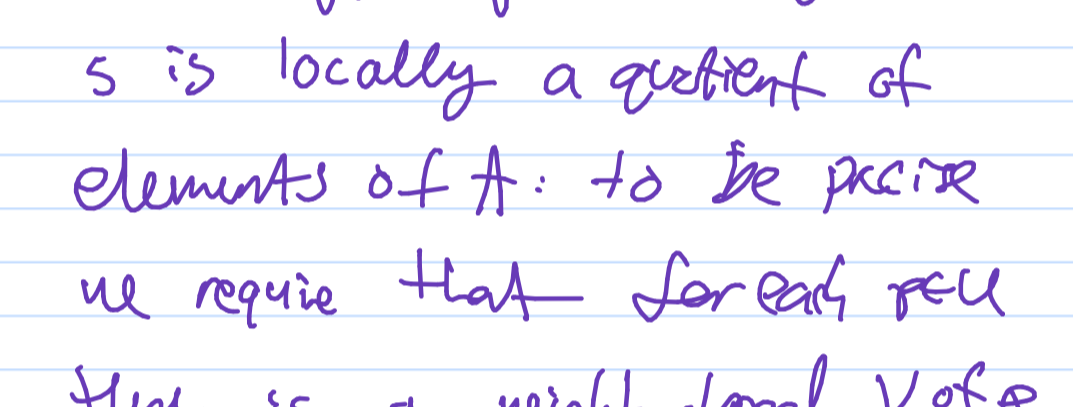 s is locally a quotient of
elements of A: to be precise
we require that for each p∈U
there is a neighborhood V of p